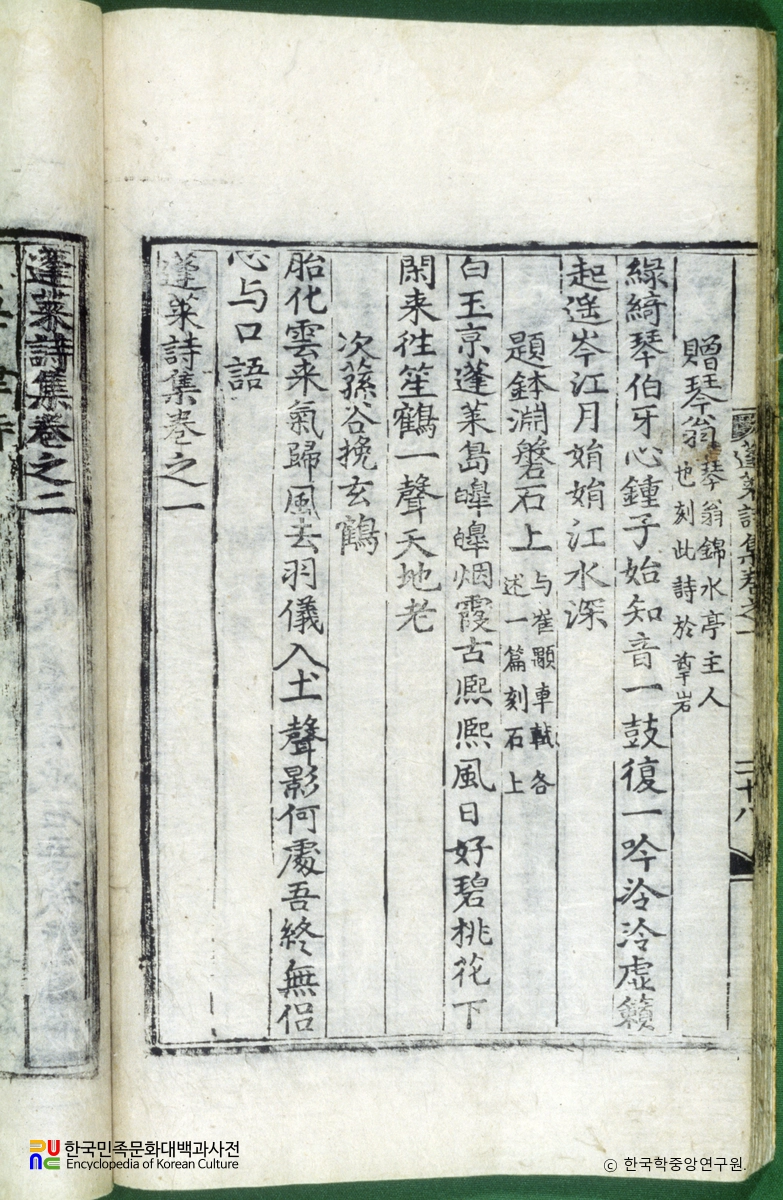 蓬莱詩集卷之一
二十八
贈琴翁 琴翁錦水亭主人
也刻此詩於尊岩
綠綺琴伯牙心鍾子始知音一鼓復一吟泠泠虛籟
起遙岑江月娟娟江水深
題鉢淵磐石上 与崔顥車軾各
述一篇刻石上
白玉京蓬莱島皥皥烟霞古熈熈風日好碧桃花下
閑来徃笙鶴一聲天地老
次蓀谷挽玄鶴
胎化雲来氣歸風去羽儀入土聲影何處吾終無侣
心与口語
蓬莱詩集卷之一
蓬莱詩集卷之二
한국민족문화대백과사전
Encyclopedia of Korean Culture
ⓒ 한국학중앙연구원.